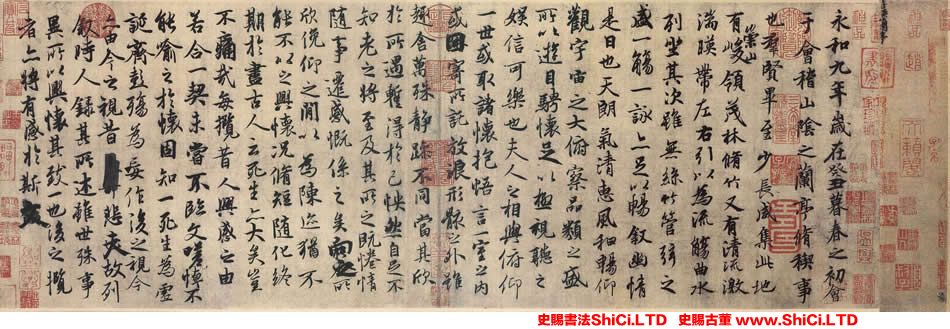 永和九年歲在癸丑暮春之初會
于會稽山陰之蘭亭脩稧事
也羣賢畢至少長咸集此地
有崇山峻領茂林脩竹又有清流激
湍暎帶左右引以為流觴曲水
列坐其次雖無絲竹管弦之
盛一觴一詠亦足以暢敘幽情
是日也天朗氣清惠風和暢仰
觀宇宙之大俯察品類之盛
所以遊目騁懷足以極視聽之
娛信可樂也夫人之相與俯仰
一世或取諸懷抱悟言一室之內
或因寄所託放浪形骸之外雖
趣舍萬殊靜躁不同當其欣
於所遇蹔得於己怏然自足不
知老之將至及其所之既惓情
隨事遷感慨係之矣向之所
欣俛仰之閒以為陳迹猶不
能不以之興懷況脩短隨化終
期於盡古人云死生亦大矣豈
不痛哉每攬昔人興感之由
若合一契未嘗不臨文嗟悼不
能喻之於懷固知一死生為虛
誕齊彭殤為妄作後之視今
亦由今之視昔悲夫故列
敘時人錄其所述雖世殊事
異所以興懷其致一也後之攬
者亦將有感於斯文
史賜書法ShiCi.LTD 史賜古董 www.ShiCi.LTD